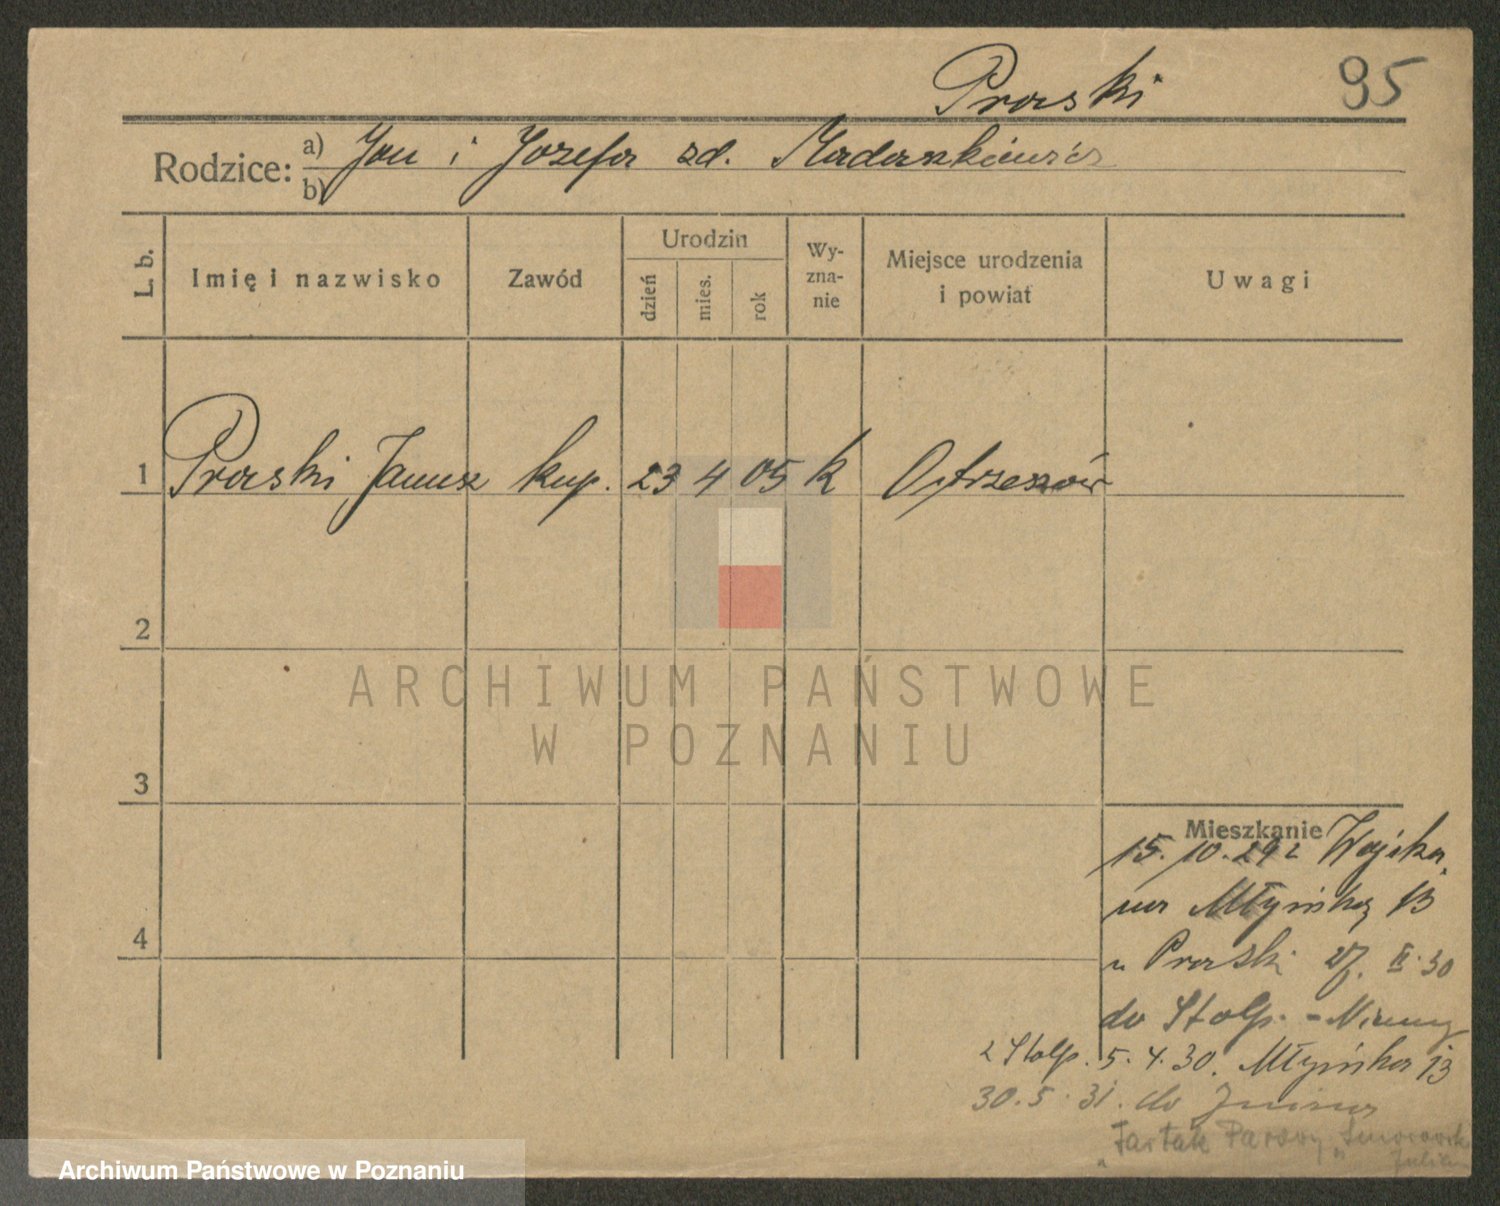 Praski 95
Rodzice: a) Jan i Józefa zd. Madaszkiewicz
b)
L. b. Imię i nazwisko Zawód Urodzin dzień mies. rok Wyznanie Miejsce urodzenia i powiat Uwagi
1 Praski Janusz kup. 23 4 05 k Ostrzeszów
2
3
4
Mieszkanie
15.10.29 z Wojska
na Młyńską 13
u Praski 27. II. 30
do Stolp. - Niemcy
z Stolp. 5.4.30. Młyńska 13
30.5.31. do Żnina
"Tartak Parowy"
ARCHIWUM PAŃSTWOWE
W POZNANIU
Archiwum Państwowe w Poznaniu